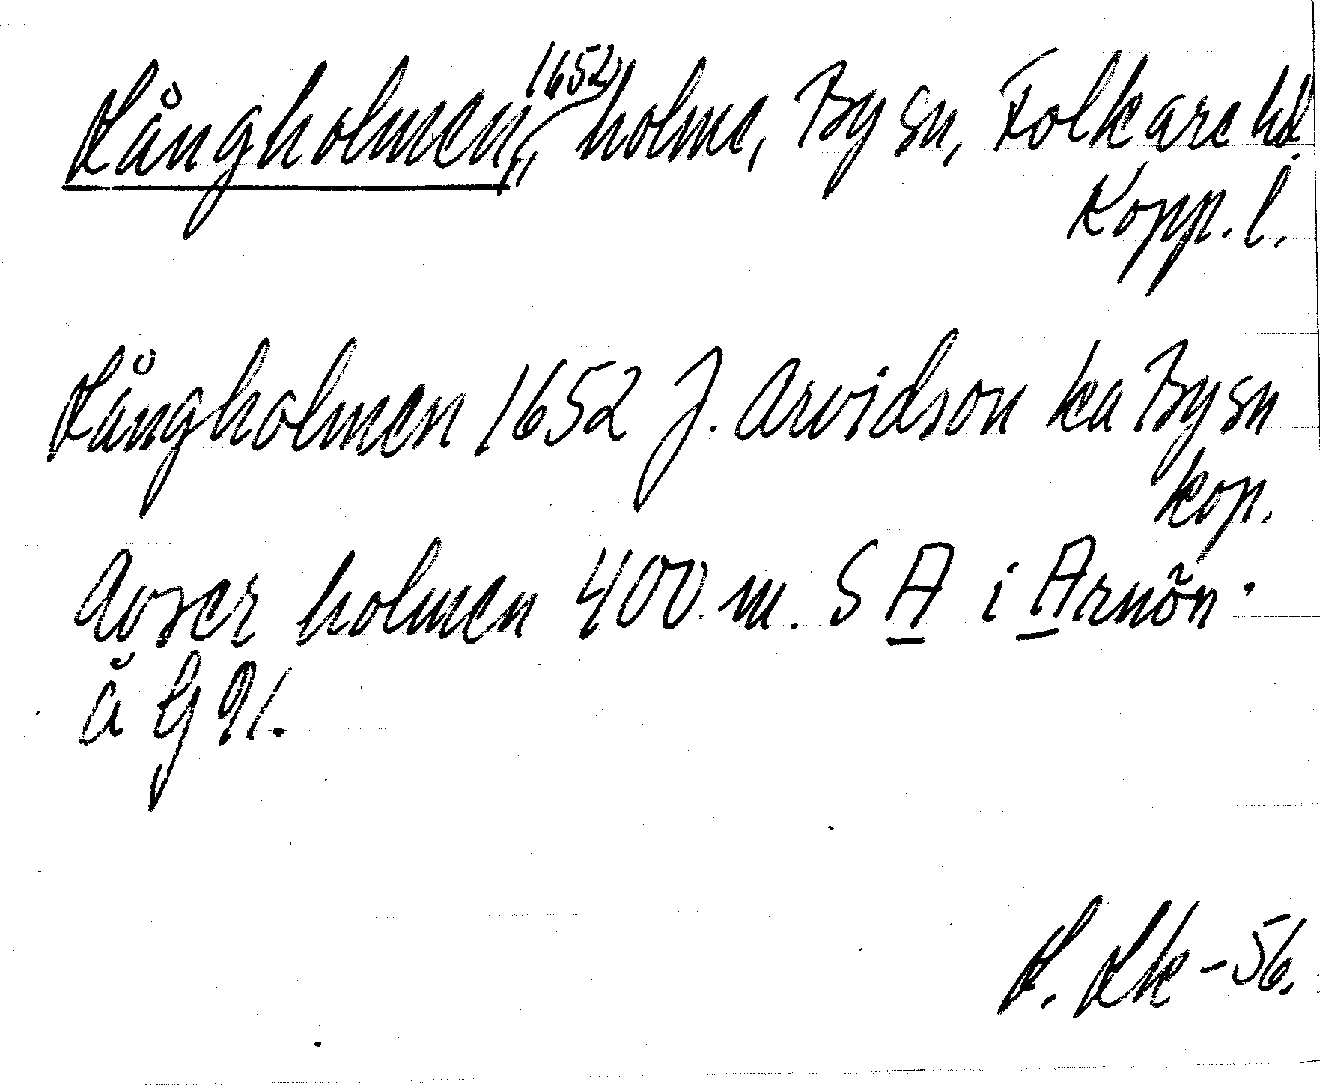 Långholmen, 1652, holme, By sn, Folkare hd.
Kopp. l.
Långholmen 1652 J. Arvidson ka By sn
kop.
Avser holmen 400 m. S A i Arnön.
å G 91.
L. Lk - 56.